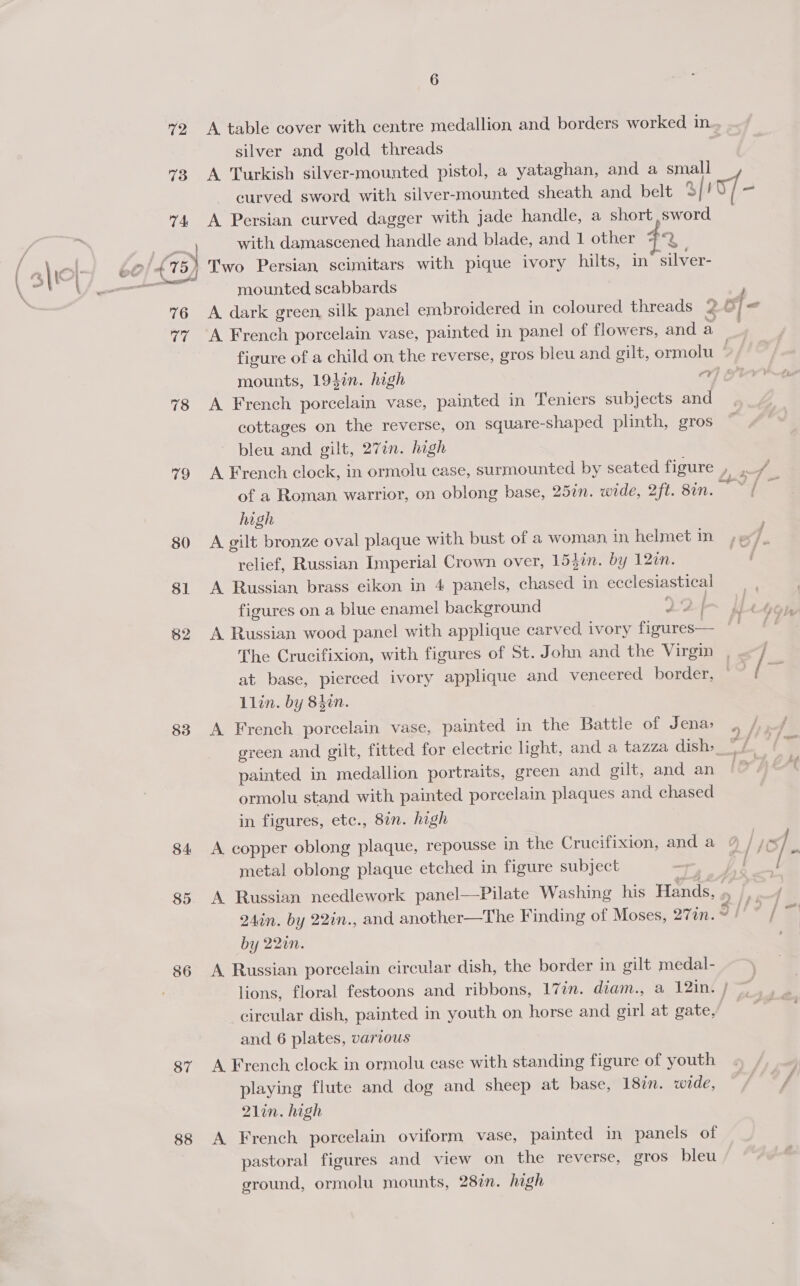 6
72 A table cover with centre medallion and borders worked in
silver and gold threads
73 A Turkish silver-mounted pistol, a yataghan, and a small
curved sword with silver-mounted sheath and belt
74 A Persian curved dagger with jade handle, a short sword
with damascened handle and blade, and 1 other
75 Two Persian scimitars with pique ivory hilts, in silver-
mounted scabbards
76 A dark green silk panel embroidered in coloured threads
77 A French porcelain vase, painted in panel of flowers, and a
figure of a child on the reverse, gros bleu and gilt, ormolu
mounts, 19½in. high
78 A French porcelain vase, painted in Teniers subjects and
cottages on the reverse, on square-shaped plinth, gros
bleu and gilt, 27in. high
79 A French clock, in ormolu case, surmounted by seated figure
of a Roman warrior, on oblong base, 25in. wide, 2ft. 8in.
high
80 A gilt bronze oval plaque with bust of a woman in helmet in
relief, Russian Imperial Crown over, 15½in. by 12in.
81 A Russian brass eikon in 4 panels, chased in ecclesiastical
figures on a blue enamel background
82 A Russian wood panel with applique carved ivory figures—
The Crucifixion, with figures of St. John and the Virgin
at base, pierced ivory applique and veneered border,
11in. by 8½in.
83 A French porcelain vase, painted in the Battle of Jena,
green and gilt, fitted for electric light, and a tazza dish,
painted in medallion portraits, green and gilt, and an
ormolu stand with painted porcelain plaques and chased
in figures, etc., 8in. high
84 A copper oblong plaque, repousse in the Crucifixion, and a
metal oblong plaque etched in figure subject
85 A Russian needlework panel—Pilate Washing his Hands,
24in. by 22in., and another—The Finding of Moses, 27in.
by 22in.
86 A Russian porcelain circular dish, the border in gilt medal-
lions, floral festoons and ribbons, 17in. diam., a 12in.
circular dish, painted in youth on horse and girl at gate,
and 6 plates, various
87 A French clock in ormolu case with standing figure of youth
playing flute and dog and sheep at base, 18in. wide,
21in. high
88 A French porcelain oviform vase, painted in panels of
pastoral figures and view on the reverse, gros bleu
ground, ormolu mounts, 28in. high